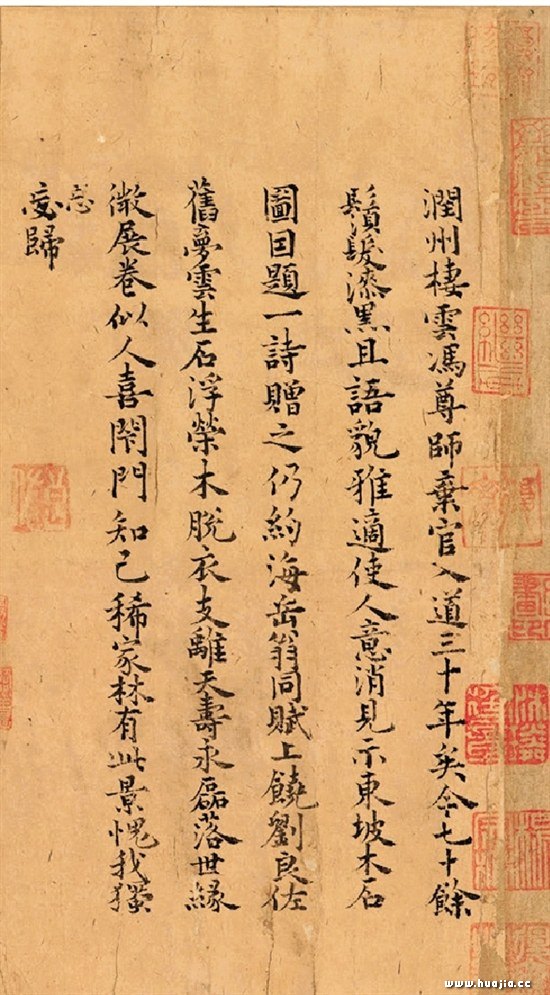 潤州棲雲馮尊師棄官入道三十年矣今七十餘
鬚髮漆黑且語貌雅適使人意消見示東坡木石
圖因題一詩贈之仍約海岳翁同賦上饒劉良佐
舊夢雲生石浮榮木脫衣支離天壽永磊落世緣
微展卷似人喜閉門知己稀家林有此景愧我獨
忘歸
www.huajia.cc